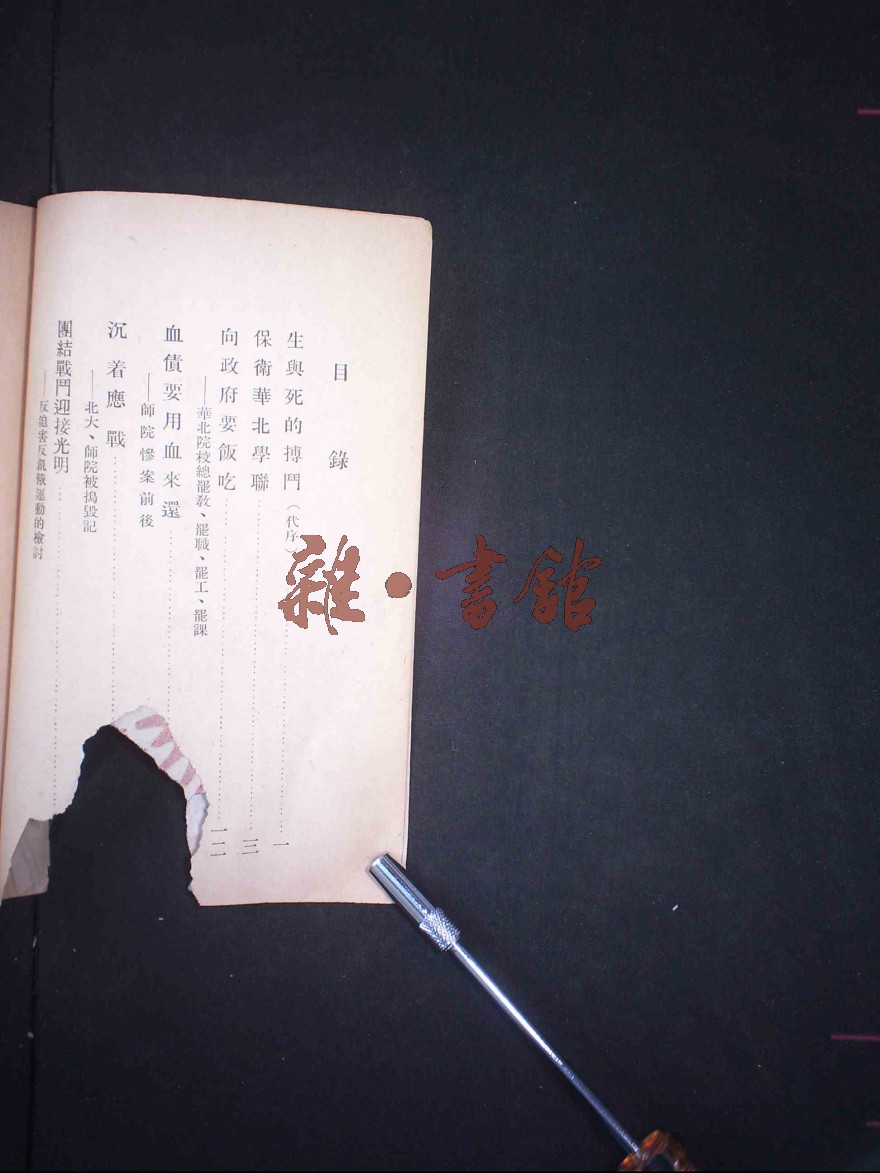 目錄
生與死的搏鬥（代序）……一
保衛華北學聯……三
向政府要飯吃……一二
——華北院校總罷教、罷職、罷工、罷課
血債要用血來還……
——師院慘案前後
沉着應戰……
——北大、師院被搗毀記
團結戰鬥迎接光明……
——反迫害反飢餓運動的檢討
雜·書館